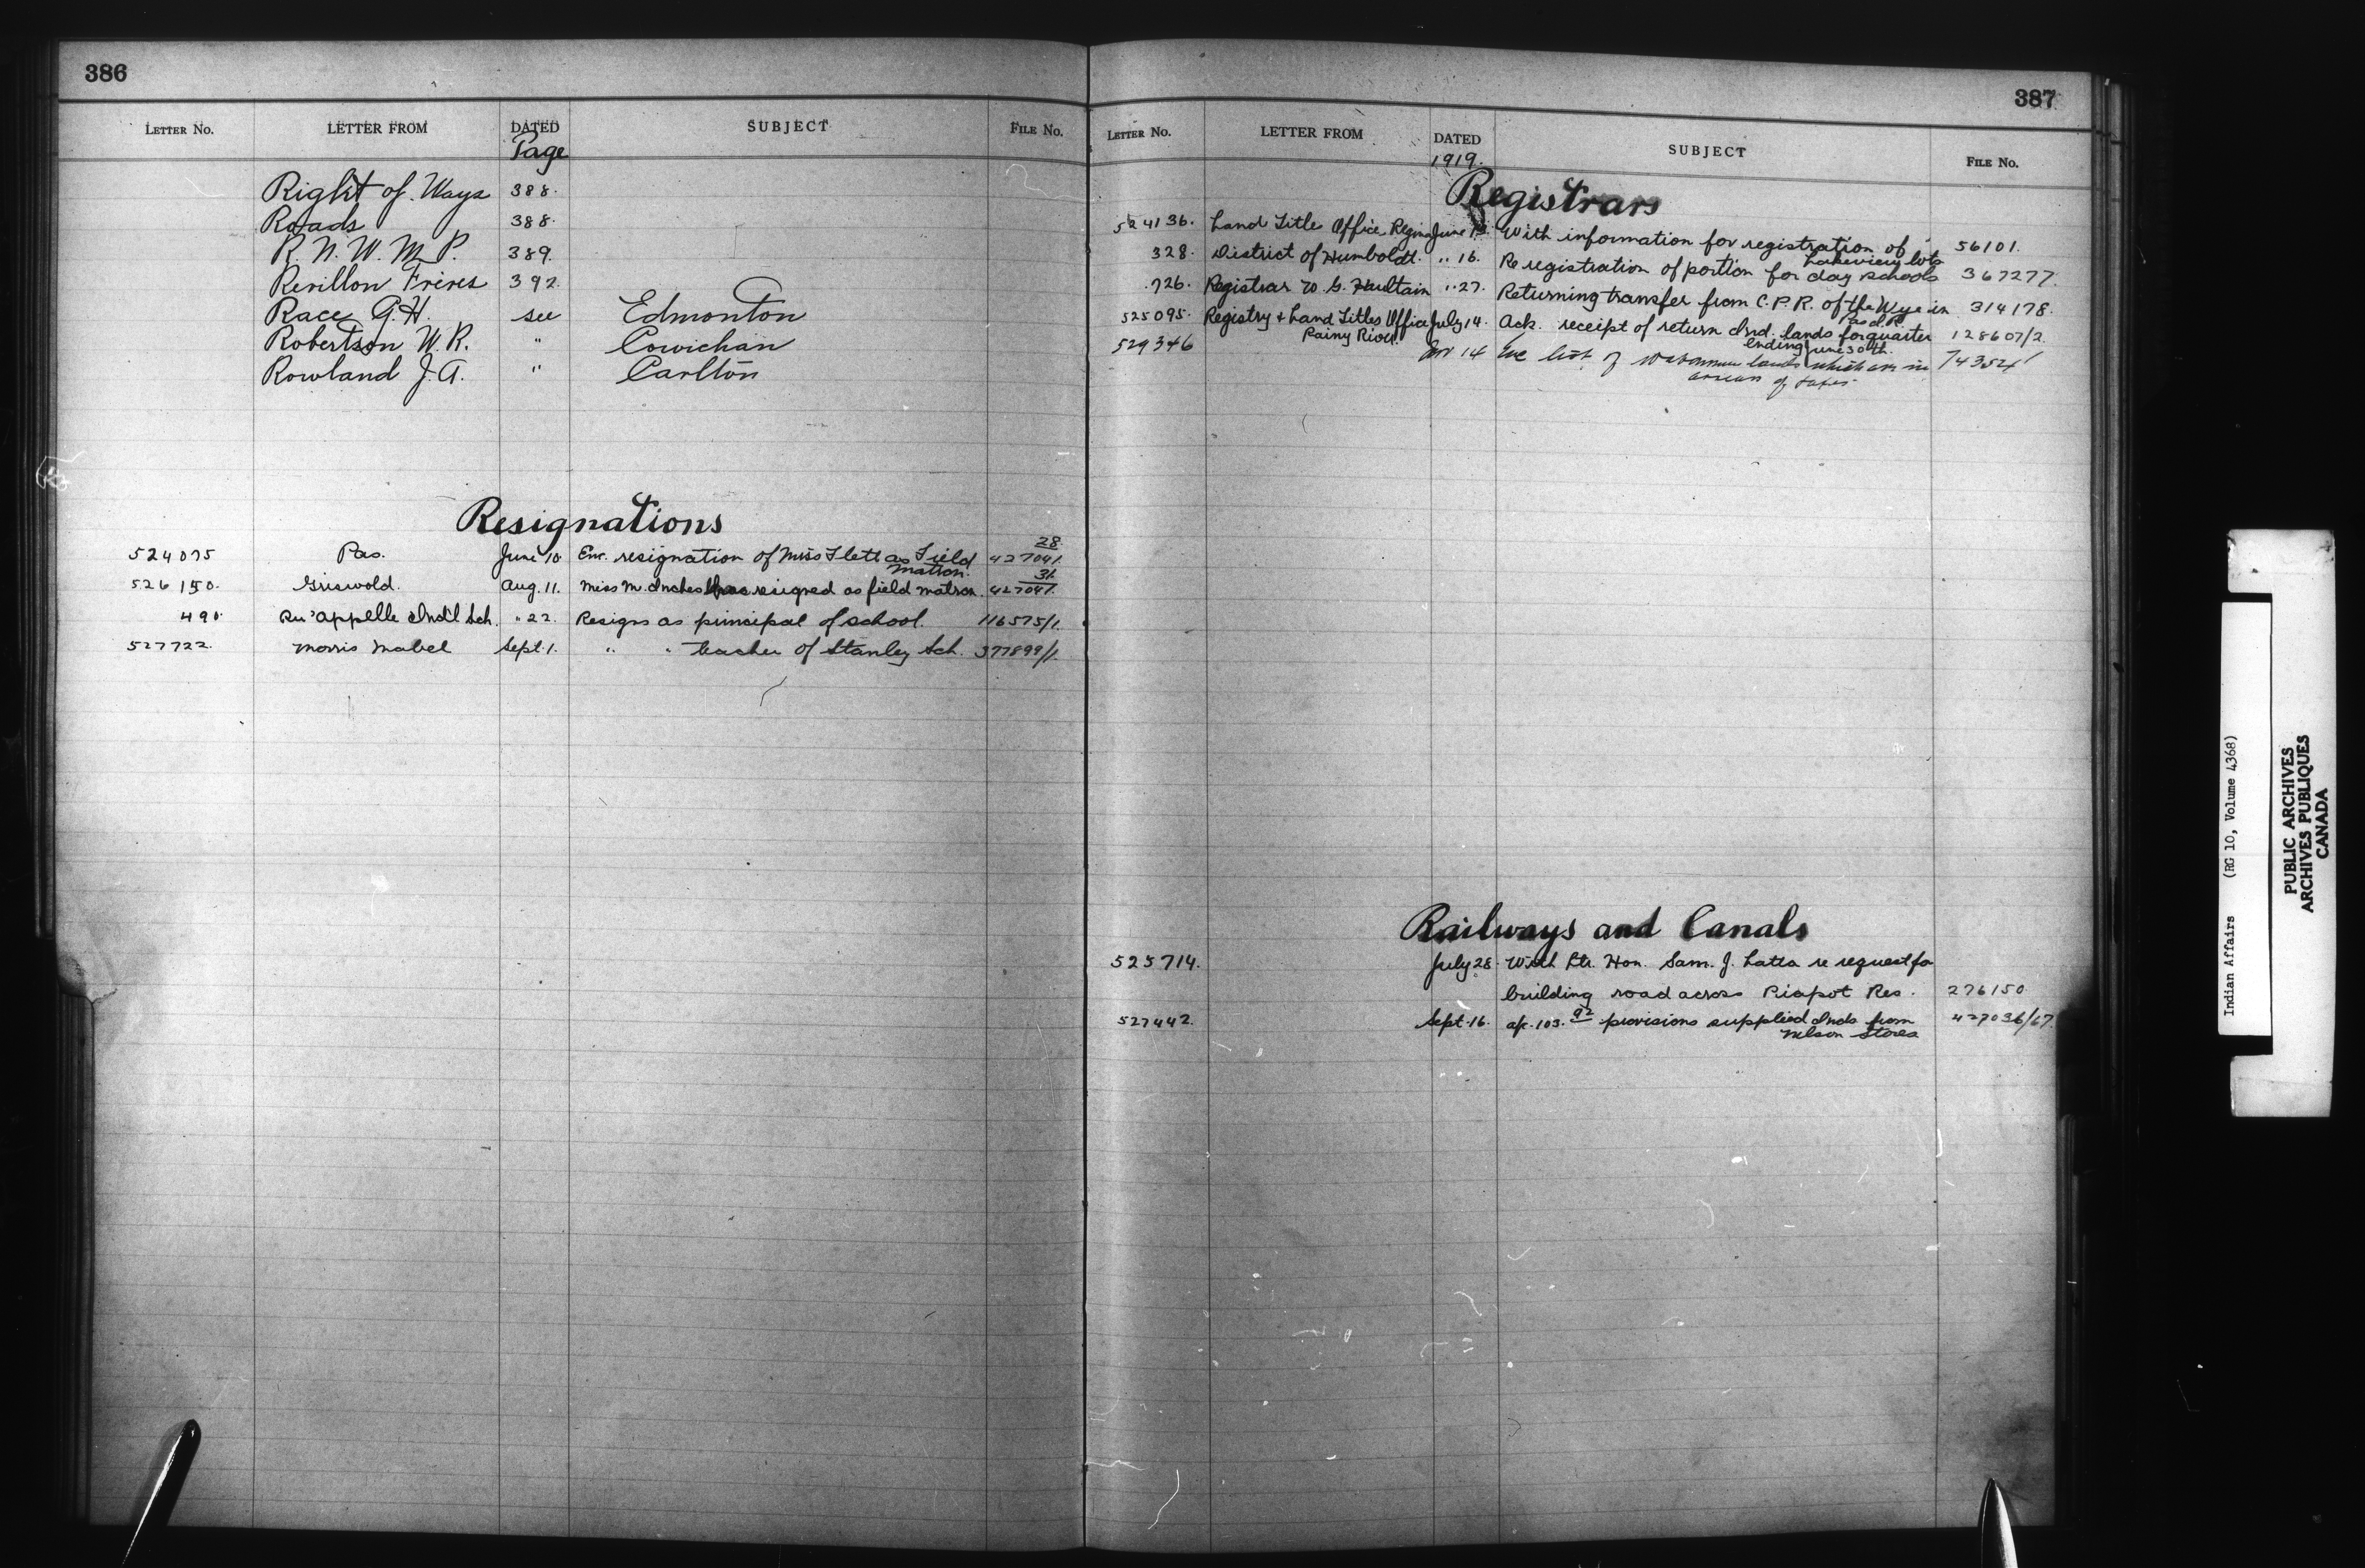 386
LETTER No. LETTER FROM DATED SUBJECT FILE No.
Page
Right of Ways 388.
Roads 388.
R. N. W. M. P. 389.
Revillon Freres 392.
Race G.H. see Edmonton
Robertson W.R. " Cowichan
Rowland J.A. " Carlton
Resignations
28
524075 Pas. June 10 Enc. resignation of Miss Flett as Field 427041.
Matron. 31.
526150. Griswold. Aug. 11. Miss M. Inches has resigned as field matron. 427041.
490. Qu'appelle Ind'l Sch. " 22. Resigns as principal of school. 116575/1.
527722. Morris Mabel Sept. 1. " " teacher of Stanley Sch. 377899/1.
387
LETTER No. LETTER FROM DATED SUBJECT FILE No.
1919.
Registrars
524136. Land Title Office Regina June With information for registration of 56101.
Lakeview lots
328. District of Humboldt. " 16. Re registration of portion for day schools 367277.
726. Registrar W. G. Haultain " 27. Returning transfer from C.P.R. of the Wye in 314178.
Pas d.R.
525095. Registry & Land Titles Office July 14. Ack. receipt of return Ind. lands for quarter 128607/2.
Rainy River. ending June 30th.
529346 Nov 14 Enc list of lands which are in 74354/
arrears of taxes
Railways and Canals
525714. July 28. With Ltr. Hon. Sam. J. Latta re request for
building road across Piapot Res. 276150
527442. Sept. 16. a/c. 103.92 provisions supplied Inds from 427036/67.
Nelson Stores
Indian Affairs (RG 10, Volume 4368)
PUBLIC ARCHIVES
ARCHIVES PUBLIQUES
CANADA